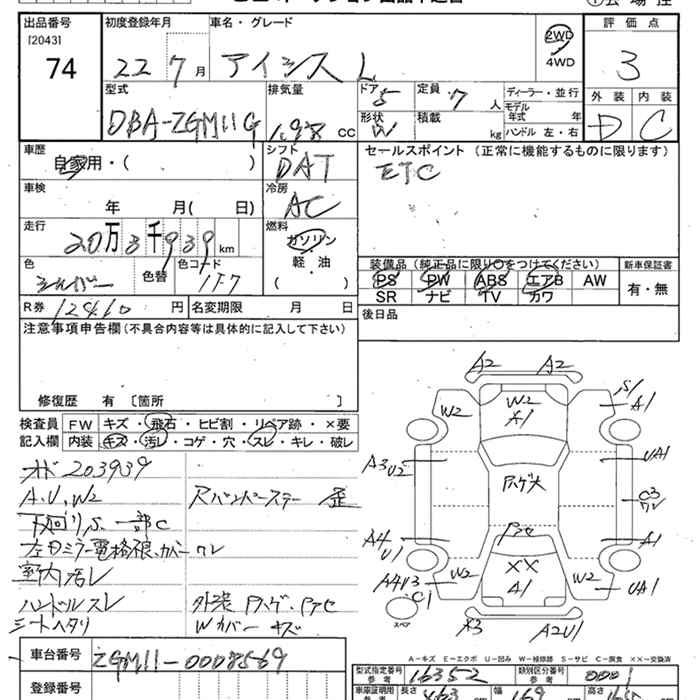 ① 会 場 控
出品番号 初度登録年月 車名・グレード 評 価 点
[2043]
74 22 7 月 アイシス L 2WD 3
4WD
型式 排気量 ドア 5 定員 7 人 ディーラー・並行 外 装 内 装
モデル 年式 年
DBA-ZGM11G 1.98 CC 形状 W 積載 kg ハンドル 左・右 D C
車歴 シフト セールスポイント (正常に機能するものに限ります)
自家用・( ) DAT ETC
車検 冷房
年 月( 日) AC
走行 燃料
20万3千939 km ガソリン
軽・油
( )
色 色替 色コード 装備品 (純正品に限り○をつけてください) 新車保証書
シルバー 1F7 PS PW ABS エアB AW 有・無
SR ナビ TV カワ
R券 12410 円 名変期限 月 日 後日品
注意事項申告欄 (不具合内容等は具体的に記入して下さい)
修復歴 有 〔箇所 〕
検査員 FW キズ・飛石・ヒビ割・リペア跡・×要
記入欄 内装 キズ・汚レ・コゲ・穴・スレ・キレ・破レ
203939
A.U.W2 Rバンパーステー 歪
下回りS.一部C
左ドミラー電格根.カバーワレ
室内汚レ
ハンドルスレ 外装 Pハゲ.
シートヘタリ Wカバーキズ
A2 A2
W2 W2 A1 S1 A1
A3 U2 Pハゲ大 UA1
C3 ワレ
A4 U1 A1
W2 XX A1 W2 UA1
C1
スペア
A2U1
車台番号 ZGM11-0008569
登録番号
A-キズ E-エクボ U-凹み W-補修跡 S-サビ C-腐食 XX-交換済
型式指定番号 参考 16352 類別区分番号 参考 0001
車庫証明用 参考 長さ 463 幅 169 高さ